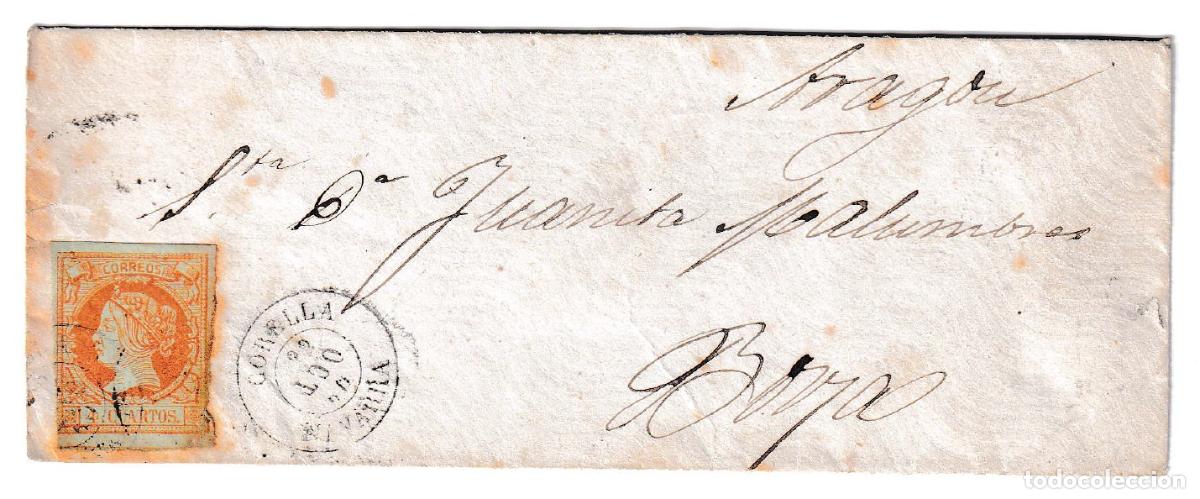 Aragon
Sta Da Juanita Malumbres
Borja
CORREOS
4 CUARTOS.
CORELLA
OCT
60
NAVARRA
todocoleccion